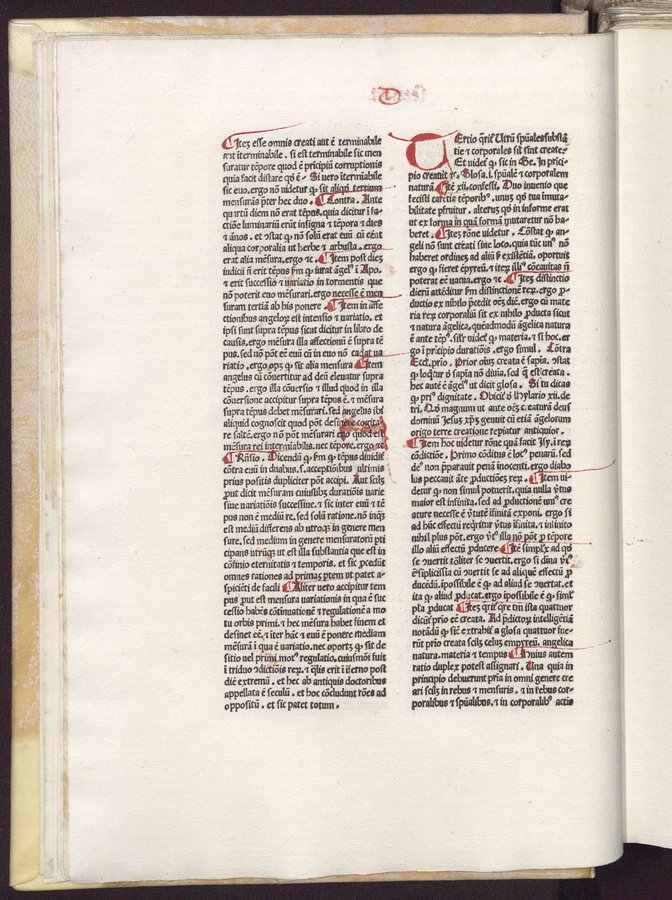 Itez esse omnis creati aut ē terminabile
aut iterminabile. si est terminabile sic men
suratur tēpore quod ē pricipiū corruptionis
quia facit distare qd ē. Si vero itermiabile
sic euo. ergo nō videtur ꝙ sit aliqd tertium
mensurās pter hec duo. Contra. Ante
quartū diem nō erat tēpus. quia dicitur ī fa-
ctiōe luminariū erūt insigna ⁊ tēpora ⁊ dies
⁊ ānos. et ↄstat ꝙ nō solū erat euū cū eēnt
aliqua corporalia ut herbe ⁊ arbusta. ergo
erat alia mēsura. ergo ⁊c. Item post diez
iudicii nō erit tēpus fm ꝙ iurat āgel⁹ ī Apo.
⁊ erit successio ⁊ variatio in tormentis que
nō poterit euo mēsurari. ergo necesse ē men
suram tertiā ab his ponere. Item in affe
ctionibus angeloꝝ est intensio ⁊ variatio. et
ipsi sunt supra tēpus sicut dicitur in libro de
causis. ergo mēsura illa affectionū ē supra tē
pus. sed nō pōt eē euū cū in euo nō cadat ua
riatio. ergo opꝫ ꝙ sit alia mensura Item
angelus cū cōuertitur ad deū eleuatur supra
tēpus. illa cōuersio ⁊ illud quod in illa
cōuersione accipitur supra tēpus ē. ⁊ mēsura
supra tēpus debet mēsurari. sed angelus ibi
aliquid cognoscit quod pōt desinere cogita-
re saltē. ergo nō pōt mēsurari eo quod est
mēsura rei intermiabilis. nec tēpore. ergo ⁊c
Rñsio. Dicendū ꝙ fm ꝙ tēpus diuidit̄
contra euū in duabus. s. acceptionibus ultimis
prius positis dupliciter pōt accipi. Aut scilꝫ
ꝓut dicit mēsuram cuiuslibꝫ duratiōis varie
siue variatiōis successiue. ⁊ sic inter euū ⁊ tē
pus non ē mediū re. sed solū ratione. nō inqꝫ
est mediū differens ab utroqꝫ in genere men
sure. sed medium in genere mensuratorū pti
cipans utrūqꝫ ut est illa substantia que est in
cōfinio eternitatis ⁊ temporis. et sic ꝓcedūt
omnes rationes ad primaꝫ ptem ut patet a-
spiciēti de facili Aliter vero accipitur tem
pus ꝓut est mensura variationis in qua ē suc
cessio habēs cōtinuationē ⁊ regulationē a mo
tu orbis primi. ⁊ hec mēsura habet finem et
desinet eē. ⁊ iter hāc ⁊ euū ē ponere mediam
mēsurā ī qua ē variatio. nec oportꝫ ꝙ sit de
sitio nel primi mot⁹ regulatio. cuiusmōi fuit
ī triduo ↄdictiōis reꝝ. ⁊ qlis erit ī iferno post
diē extremū. et hec ab antiquis doctoribus
appellata ē seculū. et hoc cōcludunt rōes ad
oppositū. et sic patet totum.
TErtio qrit̄ Utrū spūales substā
tie ⁊ corporales sil̄ sint create.
Et videt̄ ꝙ sic in Ge. In prici-
pio creauit ⁊c. Glosa. i. spūalē ⁊ corporalem
naturā. Itē xii. confessi. Duo inuenio que
fecisti carētia tēporib⁹. unuꝫ qd tua imuta-
bilitate pfruitur. alteruꝫ qd in informe erat
ut ex forma in quā formā mutaretur nō ha-
beret. Itez rōne videtur. Cōstat ꝙ an-
geli nō sunt creati sine loco. quia tūc un⁹ nō
haberet ordineꝫ ad aliū ī existētia. oportuit
ergo ꝙ sieret ēpyreū. ⁊ iteꝝ illi⁹ cōcauitas nō
poterat eē vacua. ergo ⁊c. Itez distinctio
dierū attēditur fm distinctionē reꝝ. ergo ꝓ
ductio ex nihilo p̄cedit oēs diē. ergo cū mate
ria reꝝ corporaliū sit ex nihilo ꝓducta sicut
⁊ natura āgelica. queādmodū āgelica natura
ē ante tēp⁹. silr videt̄ ꝙ materia. ⁊ si hoc. er
go ī pricipio duratiōis. ergo simul. Cōtra
Eccl. prio. Prior oiuꝫ creata ē sapia. ↄstat
ꝙ loqtur ō sapia nō diuia. sed ꝗ est creata.
hec autē ē āgel⁹ ut dicit glosa. Si tu dicas
ꝙ pri⁹ dignitate. Obicit̄ ō ꝑ hylario xii. de
tri. Qd magnum ut ante oēꝫ c̄aturā deus
dominū Jesuꝫ xp̄ꝫ genuit cū etiā āgelorum
origo terre creatione repiatur antiquior.
Itez hoc videtur rōne quā facit Isy. ī reꝝ
cōdictiōe. Primo cōditus ē loc⁹ penarū. sed
de⁹ non p̄parauit penā inocenti. ergo diabo
lus peccauit āte ꝓductiōes reꝝ. Item ui-
detur ꝙ non simul potuerit. quia nulla v̄tus
maior est infinita. sed ad ꝓductionē uni⁹ cre
ature necesse ē v̄tutē ifinitā exponi. ergo si
ad hūc effectū reqritur v̄tus ifinita. ⁊ infinito
nihil plus pōt. ergo v̄t⁹ illa nō pōt ꝓ tēpore
illo aliū effectū ꝓducere Itē simplꝫ ad qd
se ↄuertit tōliter se ↄuertit. ergo si diuia v̄t⁹
ē siplicissia cū ↄuertit se ad aliquē effectū ꝓ
ducēdū. ipossibile ē ꝙ ad aliud se ↄuertat. et
ita ꝙ aliud ꝓducat. ergo ipossibile ē ꝙ siml̄
pla ꝓducat Itez qrit̄ qre tm̄ ista quattuor
dicūt̄ prio eē creata. Ad p̄dictoꝝ intelligētiā
notādū ꝙ sic̄ extrahit̄ a glosa quattuor fue-
rūt prio creata scilꝫ celuꝫ empyreū. angelica
natura. materia ⁊ tempus Huius autem
ratio duplex potest assignari. Una quia in
principio debuerunt pria in omni genere cre
ari scilꝫ in rebus ⁊ mensuris. ⁊ in rebus cor-
poralibus ⁊ spūalibus. ⁊ in corporalib⁹ actiā